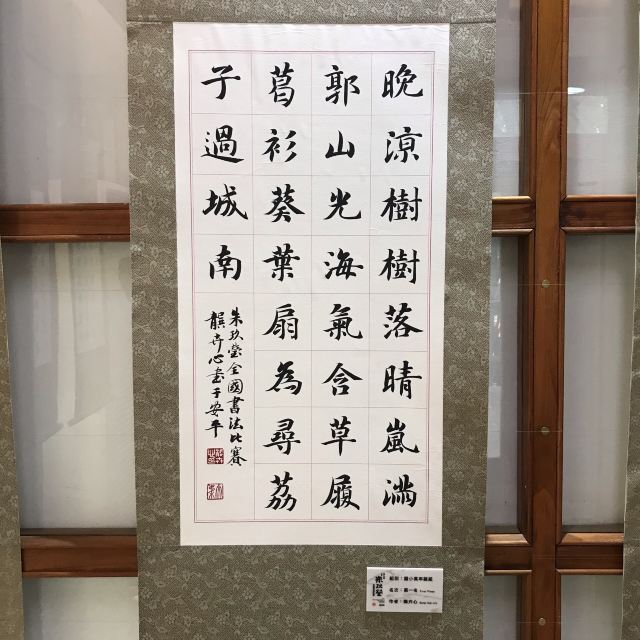 晚涼樹樹落晴嵐滿
郭山光海氣含草履
葛衫葵葉扇為尋荔
子過城南
朱玖瑩全國書法比賽
龔卉心書于安平
組別：國小高年級組
名次：第一名
作者：龔卉心